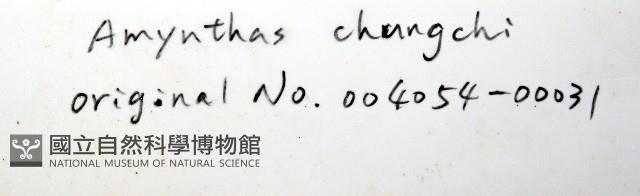 Amynthas chungchi
original No. 004054-00031
國立自然科學博物館
NATIONAL MUSEUM OF NATURAL SCIENCE